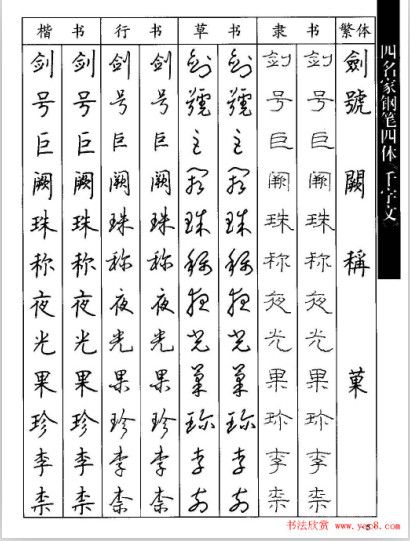 楷 书 行 书 草 书 隶 书 繁体
剑 剑 剑 剑 剑 剑 剑 剑 劍
号 号 号 号 號 號 号 号 號
巨 巨 巨 巨 巨 巨 巨 巨
阙 阙 阙 阙 阙 阙 阙 阙 闕
珠 珠 珠 珠 珠 珠 珠 珠
称 称 称 称 称 称 称 称 稱
夜 夜 夜 夜 夜 夜 夜 夜
光 光 光 光 光 光 光 光
果 果 果 果 菓 菓 果 果 菓
珍 珍 珍 珍 珍 珍 珍 珍
李 李 李 李 李 李 李 李
柰 柰 柰 柰 柰 柰 柰 柰
四名家钢笔四体《千字文》
5
书法欣赏 www.yac8.com